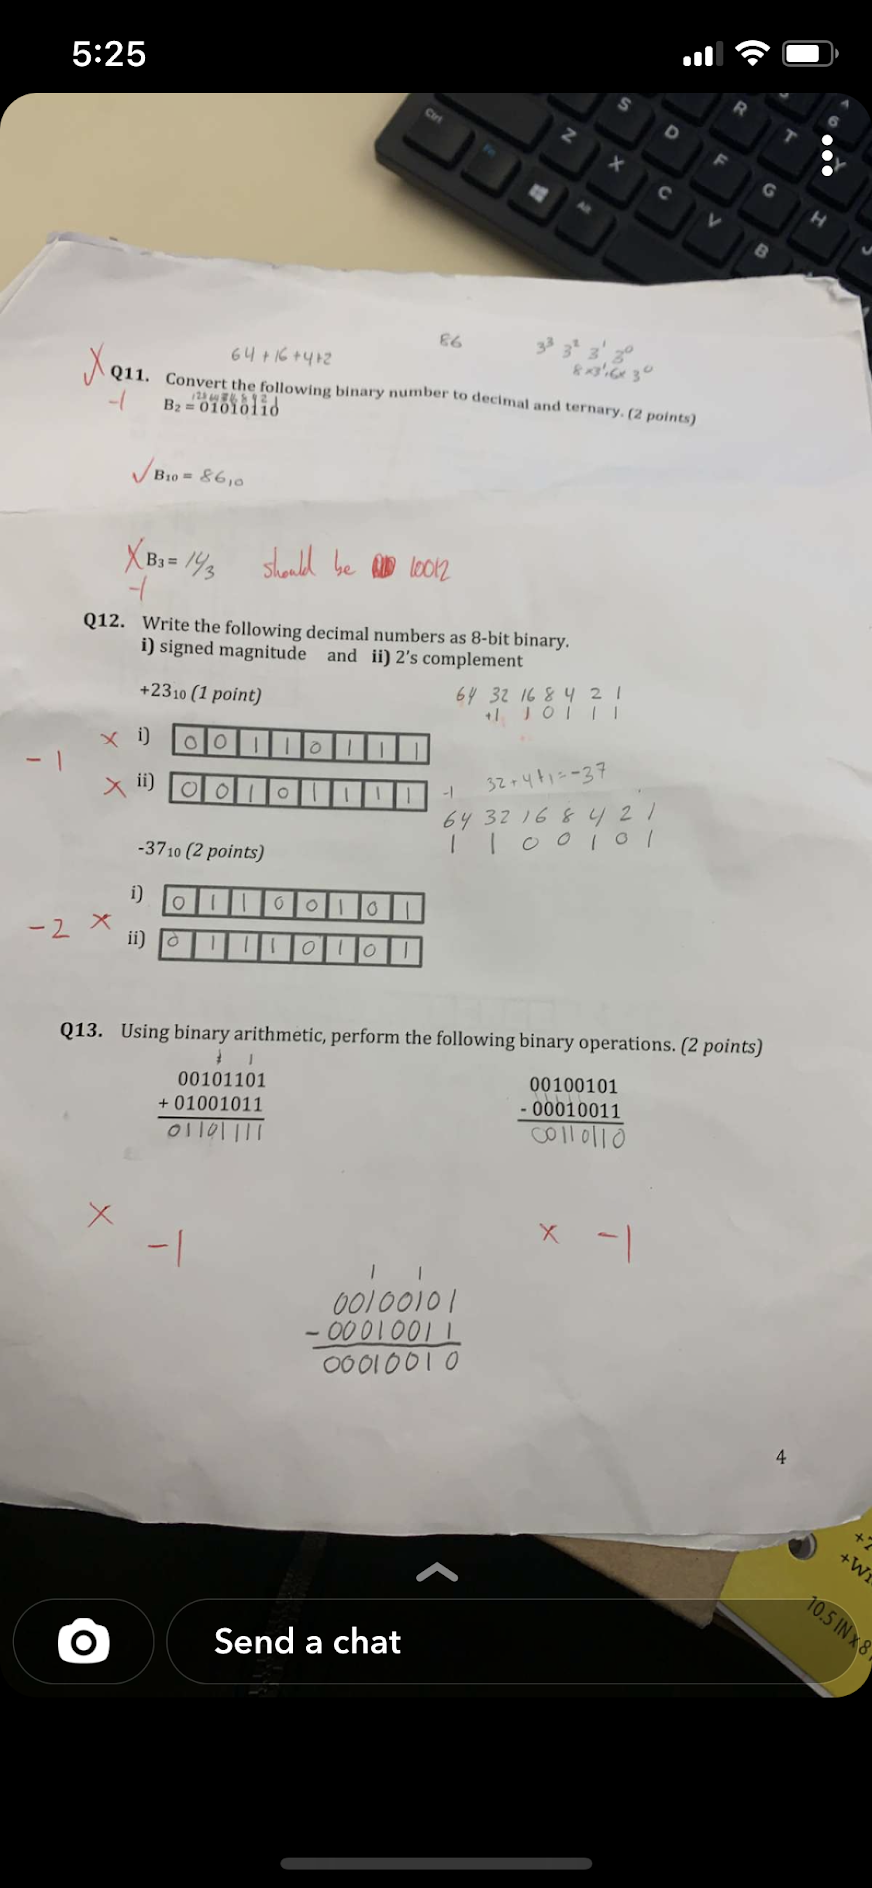 5:25
Ctrl
Fn
Alt
S
R
6
Z
D
T
Y
X
F
C
G
V
H
B
64 + 16 + 4 + 2
86
3³ 3² 3¹ 3⁰
8×3¹, 6× 3⁰
X Q11. Convert the following binary number to decimal and ternary. (2 points)
-1
B₂ = 01010110
✓ B₁₀ = 86₁₀
X B₃ = 14₃ should be 10012
-1
Q12. Write the following decimal numbers as 8-bit binary.
i) signed magnitude and ii) 2's complement
+23₁₀ (1 point)
64 32 16 8 4 2 1
+1 1 0 1 1 1
x i) 0 0 1 1 0 1 1 1
-1
x ii) 0 0 1 0 1 1 1 1
-1 32+4+1=-37
64 32 16 8 4 2 1
1 1 0 0 1 0 1
-37₁₀ (2 points)
i) 0 1 1 0 0 1 0 1
-2 x
ii) 0 1 1 1 0 1 0 1
Q13. Using binary arithmetic, perform the following binary operations. (2 points)
1 1
00101101
+ 01001011
01101111
00100101
- 00010011
00110110
x -1
x -1
1 1
00100101
- 00010011
00010010
4
10.5 IN X 8
Send a chat